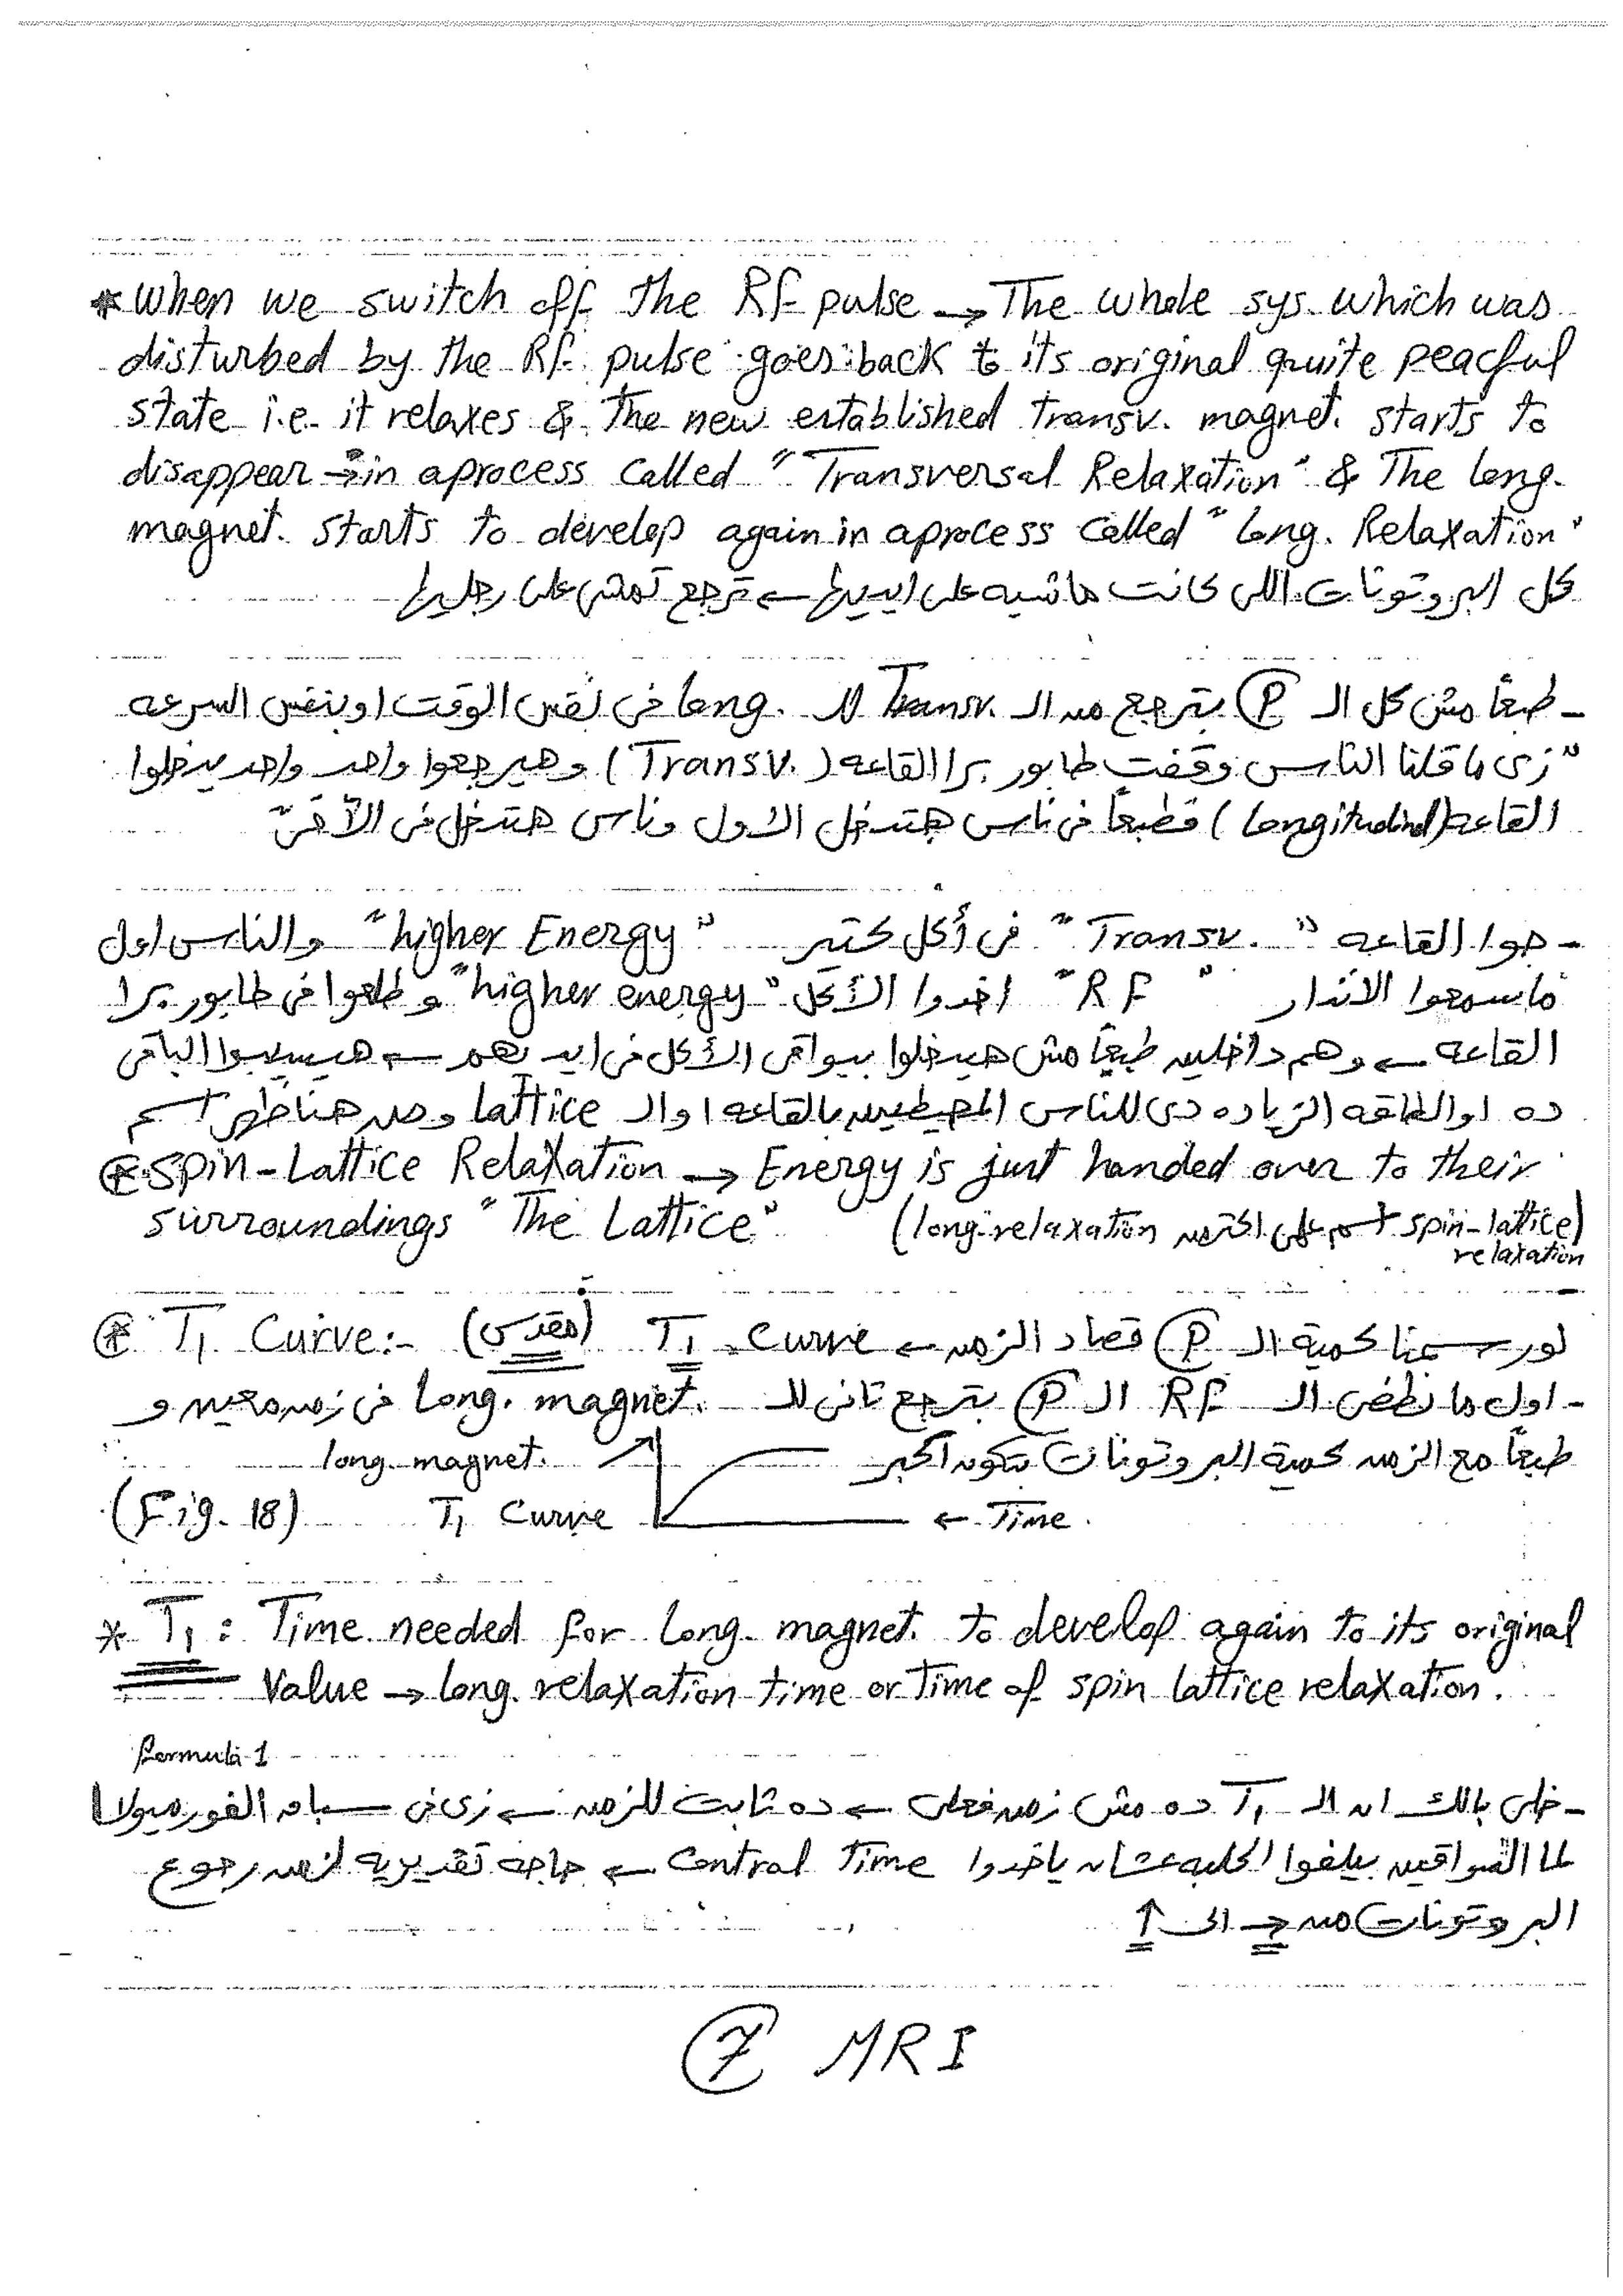 * When we switch off the RF pulse → The whole sys. which was
disturbed by the RF pulse goes back to its original quite peacful
state i.e. it relaxes & the new established transv. magnet. starts to
disappear → in aprocess called "Transversal Relaxation" & The long.
magnet. starts to develop again in aprocess called "Long. Relaxation"
كل البروتونات اللى كانت ماشيه على ايديها ← ترجع تمشى على رجليها
- طبعاً مش كل الـ P بترجع من الـ Transv. للـ long. فى نفس الوقت او بنفس السرعه
"زى ما قلنا الناس وقفت طابور برا القاعه (Transv.) وهيرجعوا واحد واحد يدخلوا
القاعه (Longitudinal) فطبعاً فى ناس هتدخل الاول وناس هتدخل فى الآخر"
- جوا القاعه "Transv." فى أكل كتير "higher Energy" والناس اول
ما سمعوا الانذار "RF" اخدوا الأكل "higher energy" وطلعوا فى طابور برا
القاعه ← وهم داخلين طبعاً مش هيدخلوا بباقى الأكل فى ايدهم ← هيسيبوا الباقى
ده او الطاقه الزياده دى للناس المحيطين بالقاعه او الـ lattice ومن هنا ظهر اسم
* Spin-Lattice Relaxation → Energy is just handed over to their
surroundings "The Lattice" (long. relaxation اسم على اكتر من spin-lattice relaxation)
* T1 Curve:- (مقدس) لو رسمنا كمية الـ P قصاد الزمن ← T1 Curve
- اول ما نطفى الـ RF الـ P بترجع تانى للـ Long. magnet. فى زمن معين و
طبعاً مع الزمن كمية البروتونات بتكون اكبر
long. magnet.
(Fig. 18) T1 Curve ← Time.
* T1: Time needed for Long. magnet. to develop again to its original
Value → Long. relaxation time or Time of spin lattice relaxation.
formula 1
- خلى بالك ان الـ T1 ده مش زمن فعلى ← ده ثابت للزمن ← زى فى سباق الفورميولا
لما السواقين بيلفوا الحلبه عشان ياخدوا Control Time ← حاجه تقديريه لزمن رجوع
البروتونات من → الى ↑
7 MRI